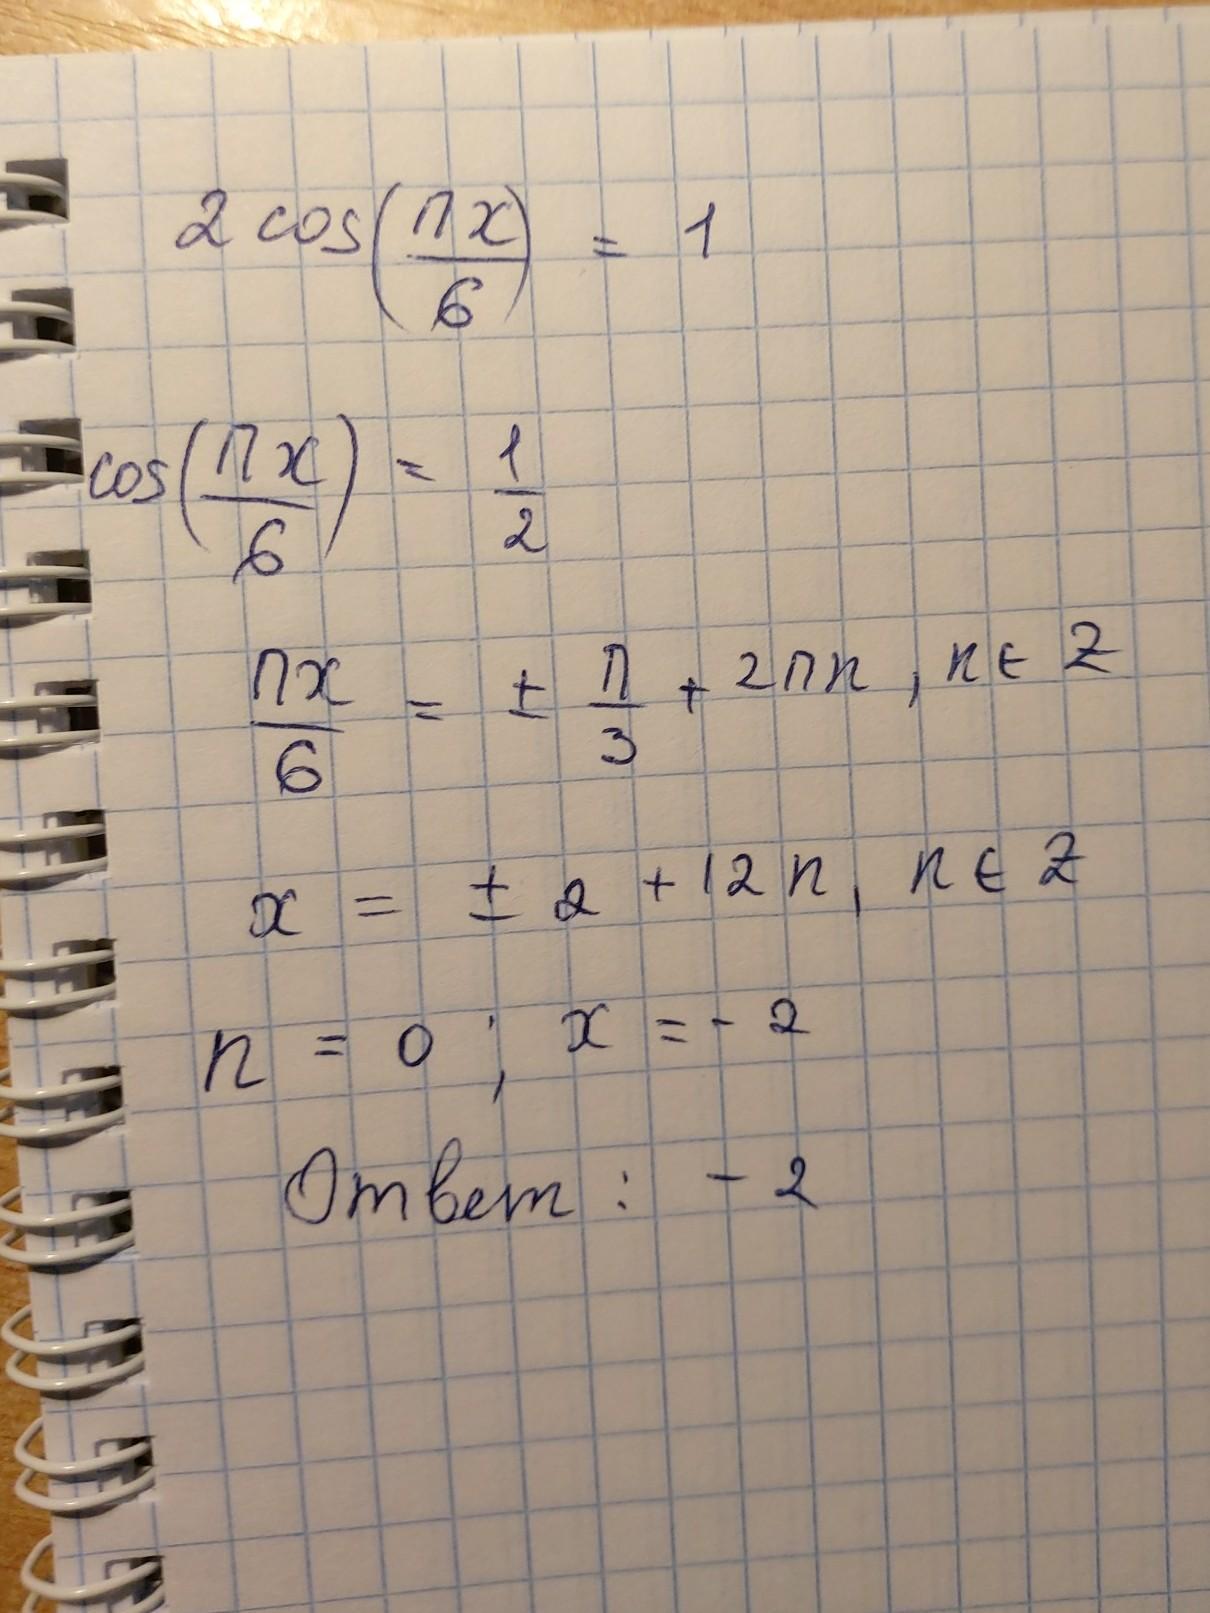 2 cos(πx/6) = 1
cos(πx/6) = 1/2
πx/6 = ± π/3 + 2πn, n ∈ Z
x = ± 2 + 12n, n ∈ Z
n = 0; x = - 2
Ответ: - 2